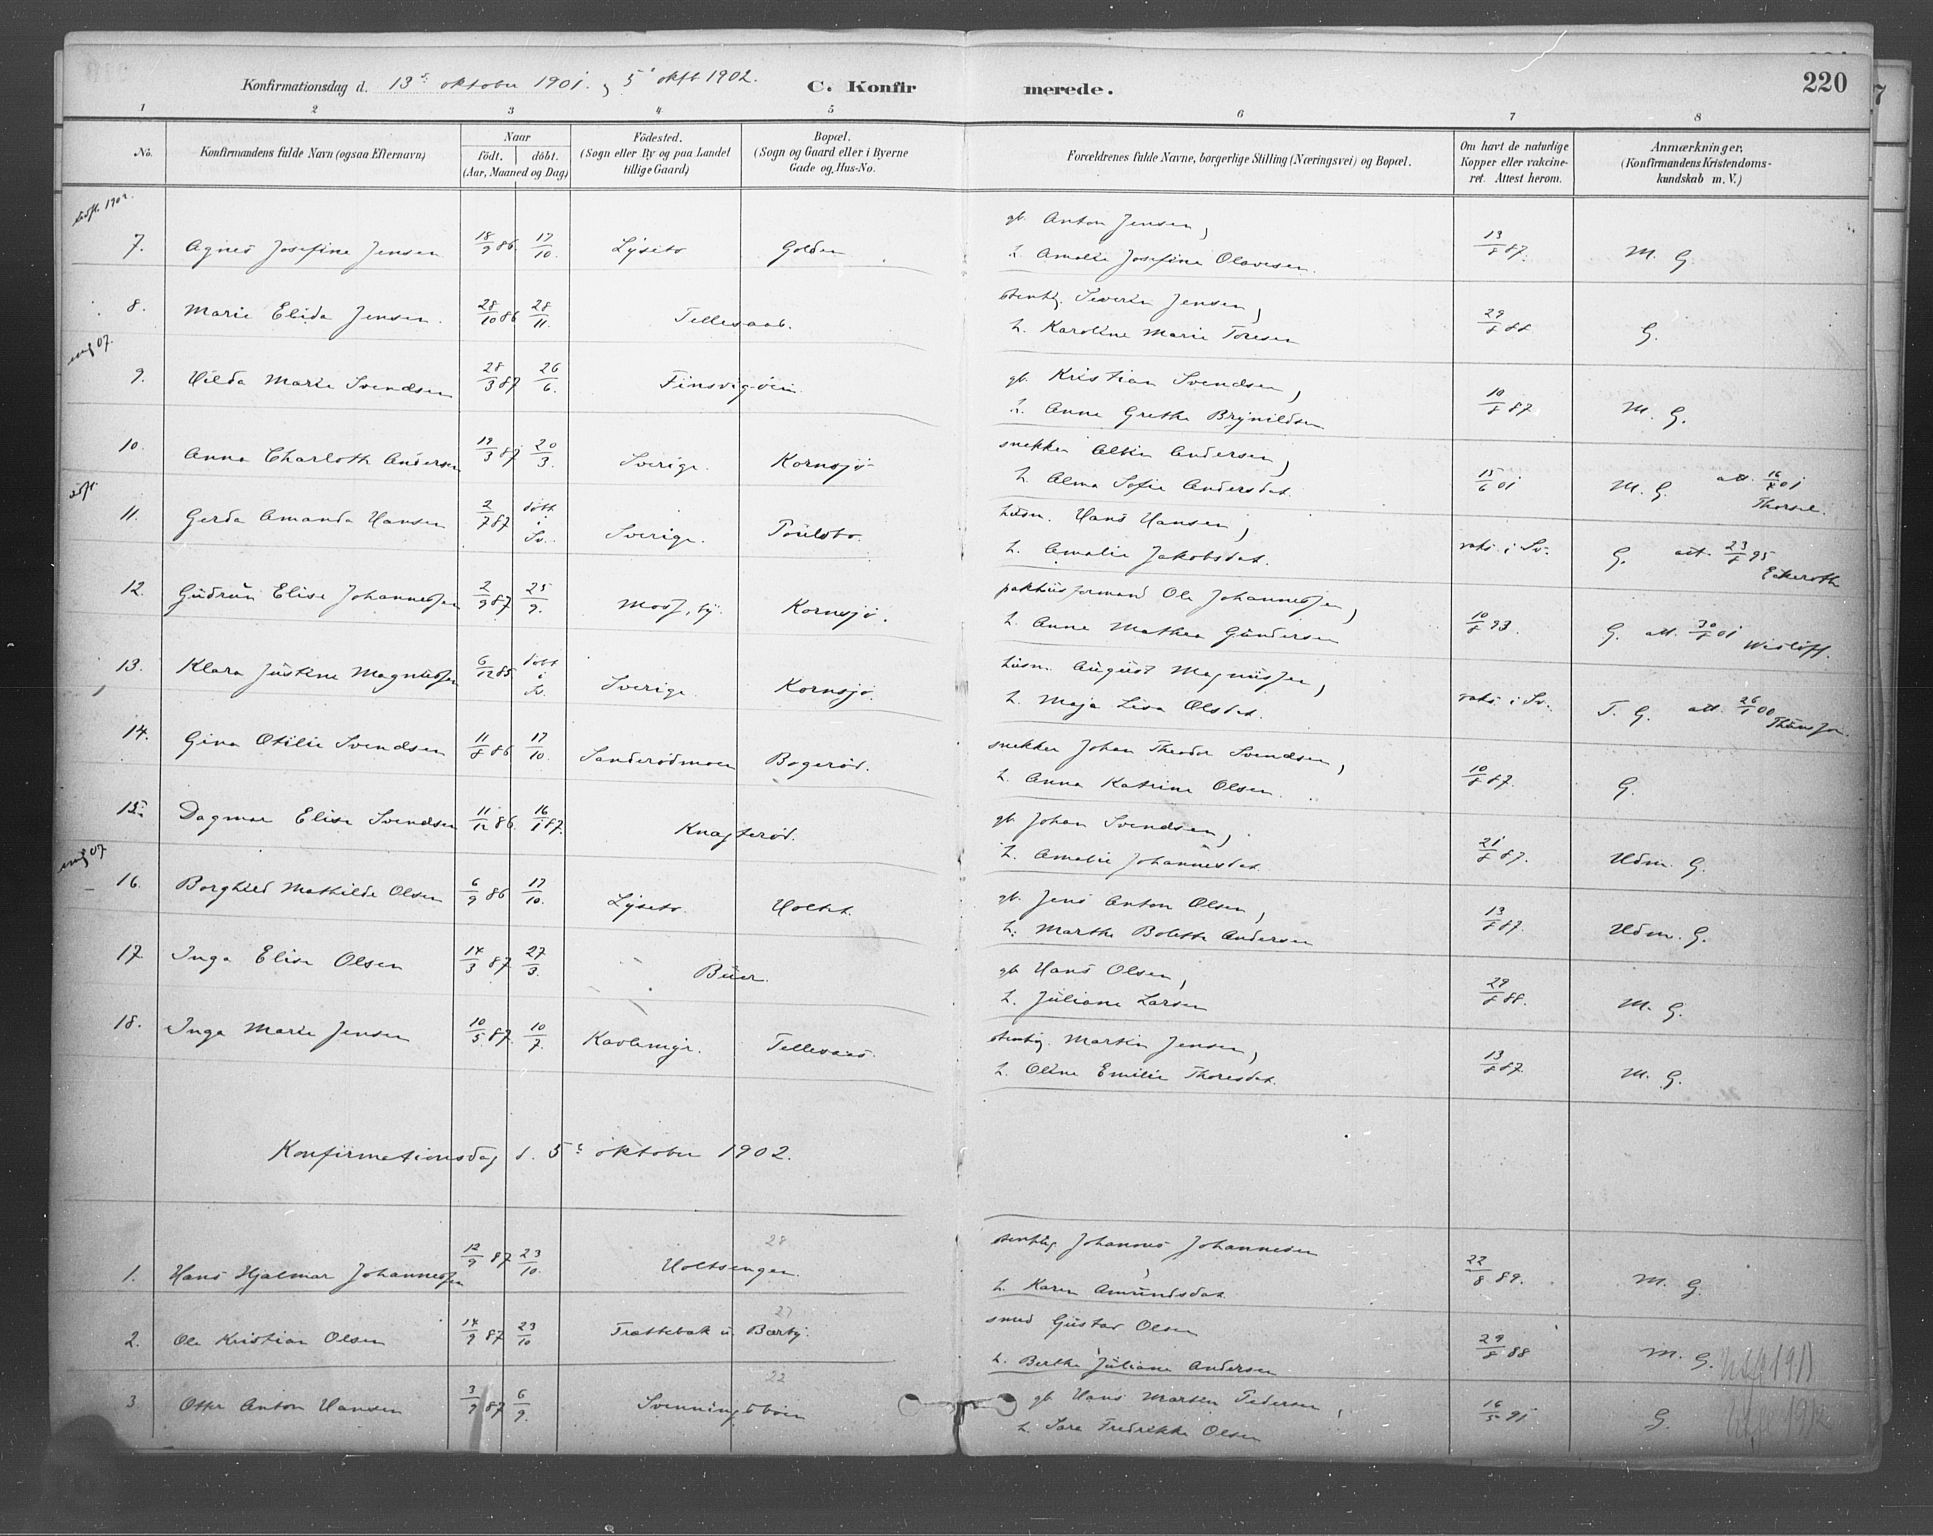 Konfirmationsdag d. 13de oktober 1901. og 5' oktb 1902. C. Konfir merede. 220
1 2 3 4 5 6 7 8
No. Konfirmandens fulde Navn (ogsaa Efternavn) Naar födt. döbt. (Aar, Maaned og Dag) Födested. (Sogn eller By og paa Landet tillige Gaard) Bopæl. (Sogn og Gaard eller i Byerne Gade og Hus-No. Forældrenes fulde Navne, borgerlige Stilling (Næringsvei) og Bopæl. Om havt de naturlige Kopper eller vakcineret. Attest herom. Anmærkninger. (Konfirmandens Kristendomskundskab m. V.)
7. Agnes Josefine Jensen 18/9 86 17/10. Lyseto Golden gb. Anton Jensen, h. Amalie Josefine Olavesen. 13/8 87. M. G.
8. Marie Elida Jensen. 28/10 86 28/11. Tellesaab. stenhg. Severin Jensen, h. Karoline Marie Toresen 29/8 88 G.
9. Hilda Marie Svendsen 28/3 87 26/6. Finsvigöien gb. Kristian Svendsen, h. Anne Grethe Brynildsen 10/8 87. M. G.
10. Anna Charlotte Andersen 19/3 87 20/3. Sverige. Kornsjø snekker Andersen, h. Alma Sofie Andersdat. 15/6 01 M. G. att. 16/8 01
11. Gerda Amanda Hansen 2/7 87 döbt i Sv. Sverige. husm. Hans Hansen, h. Amalie Jakobsdat. vaks. i Sv. G. att. 23/8 95
12. Gudrun Elise Johannessen 2/9 87 25/9. Moss, by. Kornsjø. pakhusformand Ole Johannessen, h. Anne Mathea Gundersen 10/8 93. G. att. 30/8 01 Wisløff.
13. Klara Justine Magnussen 6/12 85. döbt i Sv. Sverige. Kornsjø. husm. August Magnussen, h. Maja Lisa Olsdat. vaks. i Sv. T. G. att. 26/1 00
14. Gina Otilie Svendsen 11/8 86 17/10. Sanderödmoen Bogeröd. snekker Johan Theodor Svendsen, h. Anna Katrine Olsen. 10/8 87. G.
15. Dagmar Elise Svendsen 11/12 86. 16/1 87. Knagteröd. gb. Johan Svendsen, h. Amalie Johannesdat. 21/8 87. Udm. G.
16. Borghild Mathilde Olsen 6/9 86 17/10. Lyseto. Holtet. gb. Jens Anton Olsen, h. Marthe Bolette Andersen 13/8 87. Udm. G.
17. Inga Elise Olsen 14/3 87 27/3. Buer. gb. Hans Olsen, h. Juliane Larsen 29/8 88. M. G.
18. Inga Marie Jensen 10/5 87. 10/7. Kavlemyr. Tellesaas. stenhg. Martin Jensen, h. Oline Emilie Thoresdat. 13/8 87. M. G.
Konfirmationsdag d. 5te oktober 1902.
1. Hans Hjalmar Johannessen 12/9 87 23/10. 28 Holtsengen. stenhg Johannes Johannesen, h. Karen Amundsdat. 22/8 89. M. G.
2. Ole Kristian Olsen 14/9 87 23/10 27 Trættebak u. Bærby. smed Gustav Olsen h. Berthe Juliane Andersen 29/8 88 M. G.
3. Anton Hansen 3/9 87 6/9. 22 Svenningsböen gb. Hans Martin Pedersen, h. Sara Fredrikke Olsen 16/5 91 G.